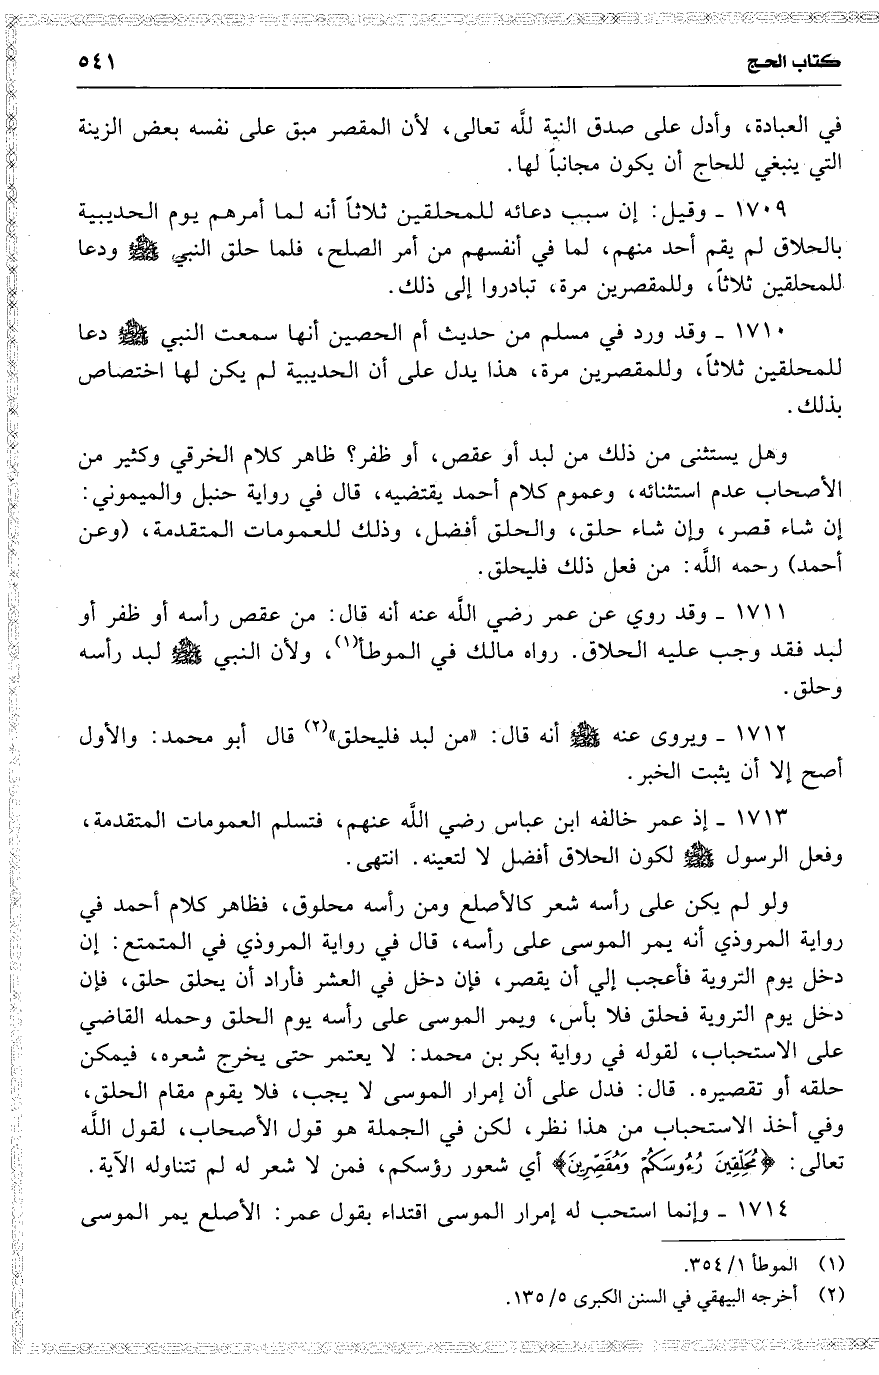 كتاب الحج
٥٤١
في العبادة، وأدل على صدق النية للَّه تعالى، لأن المقصر مبق على نفسه بعض الزينة
التي ينبغي للحاج أن يكون مجانباً لها.
١٧٠٩ ـ وقيل: إن سبب دعائه للمحلقين ثلاثاً أنه لما أمرهم يوم الحديبية
بالحلاق لم يقم أحد منهم، لما في أنفسهم من أمر الصلح، فلما حلق النبي ﷺ ودعا
للمحلقين ثلاثاً، وللمقصرين مرة، تبادروا إلى ذلك.
١٧١٠ ـ وقد ورد في مسلم من حديث أم الحصين أنها سمعت النبي ﷺ دعا
للمحلقين ثلاثاً، وللمقصرين مرة، هذا يدل على أن الحديبية لم يكن لها اختصاص
بذلك.
وهل يستثنى من ذلك من لبد أو عقص، أو ظفر؟ ظاهر كلام الخرقي وكثير من
الأصحاب عدم استثنائه، وعموم كلام أحمد يقتضيه، قال في رواية حنبل والميموني:
إن شاء قصر، وإن شاء حلق، والحلق أفضل، وذلك للعمومات المتقدمة، (وعن
أحمد) رحمه اللَّه: من فعل ذلك فليحلق.
١٧١١ ـ وقد روي عن عمر رضي اللَّه عنه أنه قال: من عقص رأسه أو ظفر أو
لبد فقد وجب عليه الحلاق. رواه مالك في الموطأ(١)، ولأن النبي ﷺ لبد رأسه
وحلق.
١٧١٢ ـ ويروى عنه ﷺ أنه قال: «من لبد فليحلق»(٢) قال أبو محمد: والأول
أصح إلا أن يثبت الخبر.
١٧١٣ ـ إذ عمر خالفه ابن عباس رضي اللَّه عنهم، فتسلم العمومات المتقدمة،
وفعل الرسول ﷺ لكون الحلاق أفضل لا لتعينه. انتهى.
ولو لم يكن على رأسه شعر كالأصلع ومن رأسه محلوق، فظاهر كلام أحمد في
رواية المروذي أنه يمر الموسى على رأسه، قال في رواية المروذي في المتمتع: إن
دخل يوم التروية فأعجب إلي أن يقصر، فإن دخل في العشر فأراد أن يحلق حلق، فإن
دخل يوم التروية فحلق فلا بأس، ويمر الموسى على رأسه يوم الحلق وحمله القاضي
على الاستحباب، لقوله في رواية بكر بن محمد: لا يعتمر حتى يخرج شعره، فيمكن
حلقه أو تقصيره. قال: فدل على أن إمرار الموسى لا يجب، فلا يقوم مقام الحلق،
وفي أخذ الاستحباب من هذا نظر، لكن في الجملة هو قول الأصحاب، لقول اللَّه
تعالى: ﴿مُحَلِّقِينَ رُءُوسَكُمْ وَمُقَصِّرِينَ﴾ أي شعور رؤسكم، فمن لا شعر له لم تتناوله الآية.
١٧١٤ ـ وإنما استحب له إمرار الموسى اقتداء بقول عمر: الأصلع يمر الموسى
(١) الموطأ ١/ ٣٥٤.
(٢) أخرجه البيهقي في السنن الكبرى ٥/ ١٣٥.